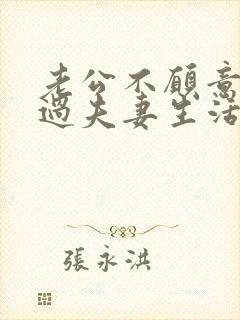 老公不願意
過夫妻生活
張永洪